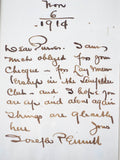 Nov
6
1914
Dear Miss. I am
much obliged for your
cheque - for Lay Mem
berships in the
Club - and I hope you
are up and about again
Things are ghastly
here Yours
Joseph Pennell